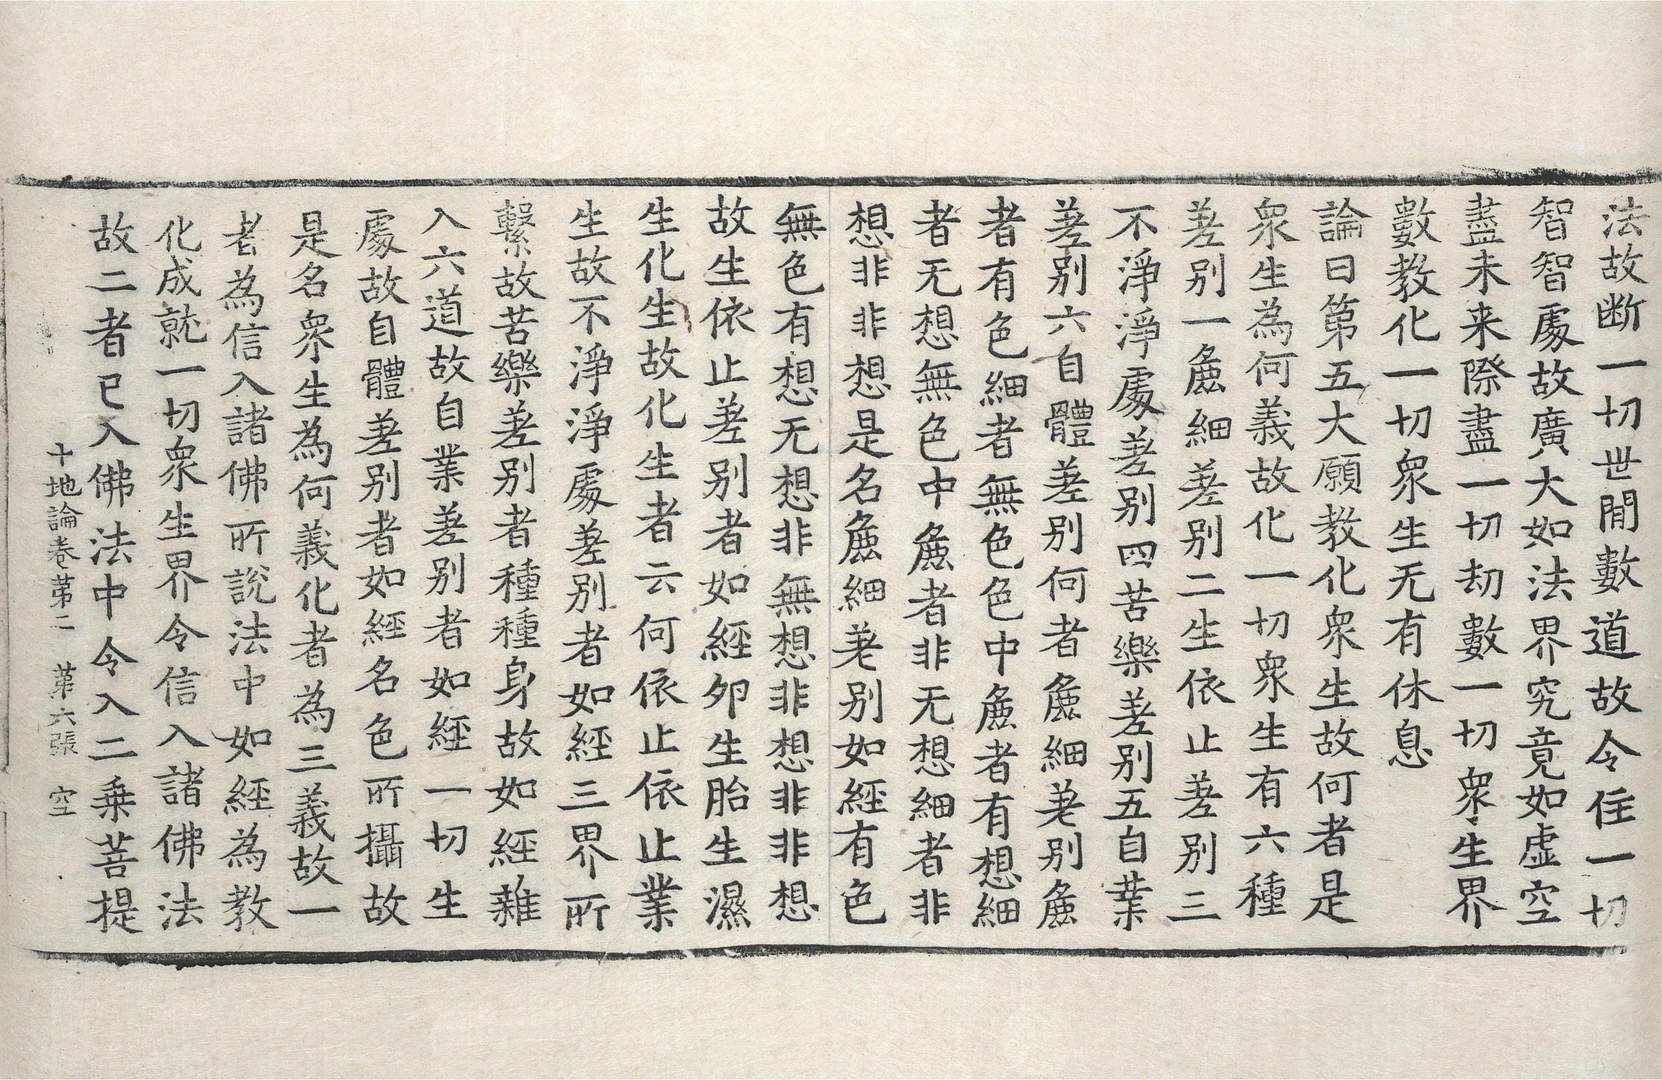 法故断一切世閒數道故令住一切
智智處故廣大如法界究竟如虛空
盡未来際盡一切劫數一切衆生界
數教化一切衆生无有休息
論曰第五大願教化衆生故何者是
衆生為何義故化一切衆生有六種
差别一麁細差别二生依止差别三
不淨淨處差别四苦樂差别五自業
差别六自體差别何者麁細差别麁
者有色細者無色色中麁者有想細
者无想無色中麁者非无想細者非
想非非想是名麁細差别如經有色
無色有想无想非無想非想非非想
故生依止差别者如經卵生胎生濕
生化生故化生者云何依止依止業
生故不淨淨處差别者如經三界所
繫故苦樂差别者種種身故如經雜
入六道故自業差别者如經一切生
處故自體差别者如經名色所攝故
是名衆生為何義化者為三義故一
者為信入諸佛所說法中如經為教
化成就一切衆生界令信入諸佛法
故二者已入佛法中令入二乗菩提
十地論卷第二 第六張 空